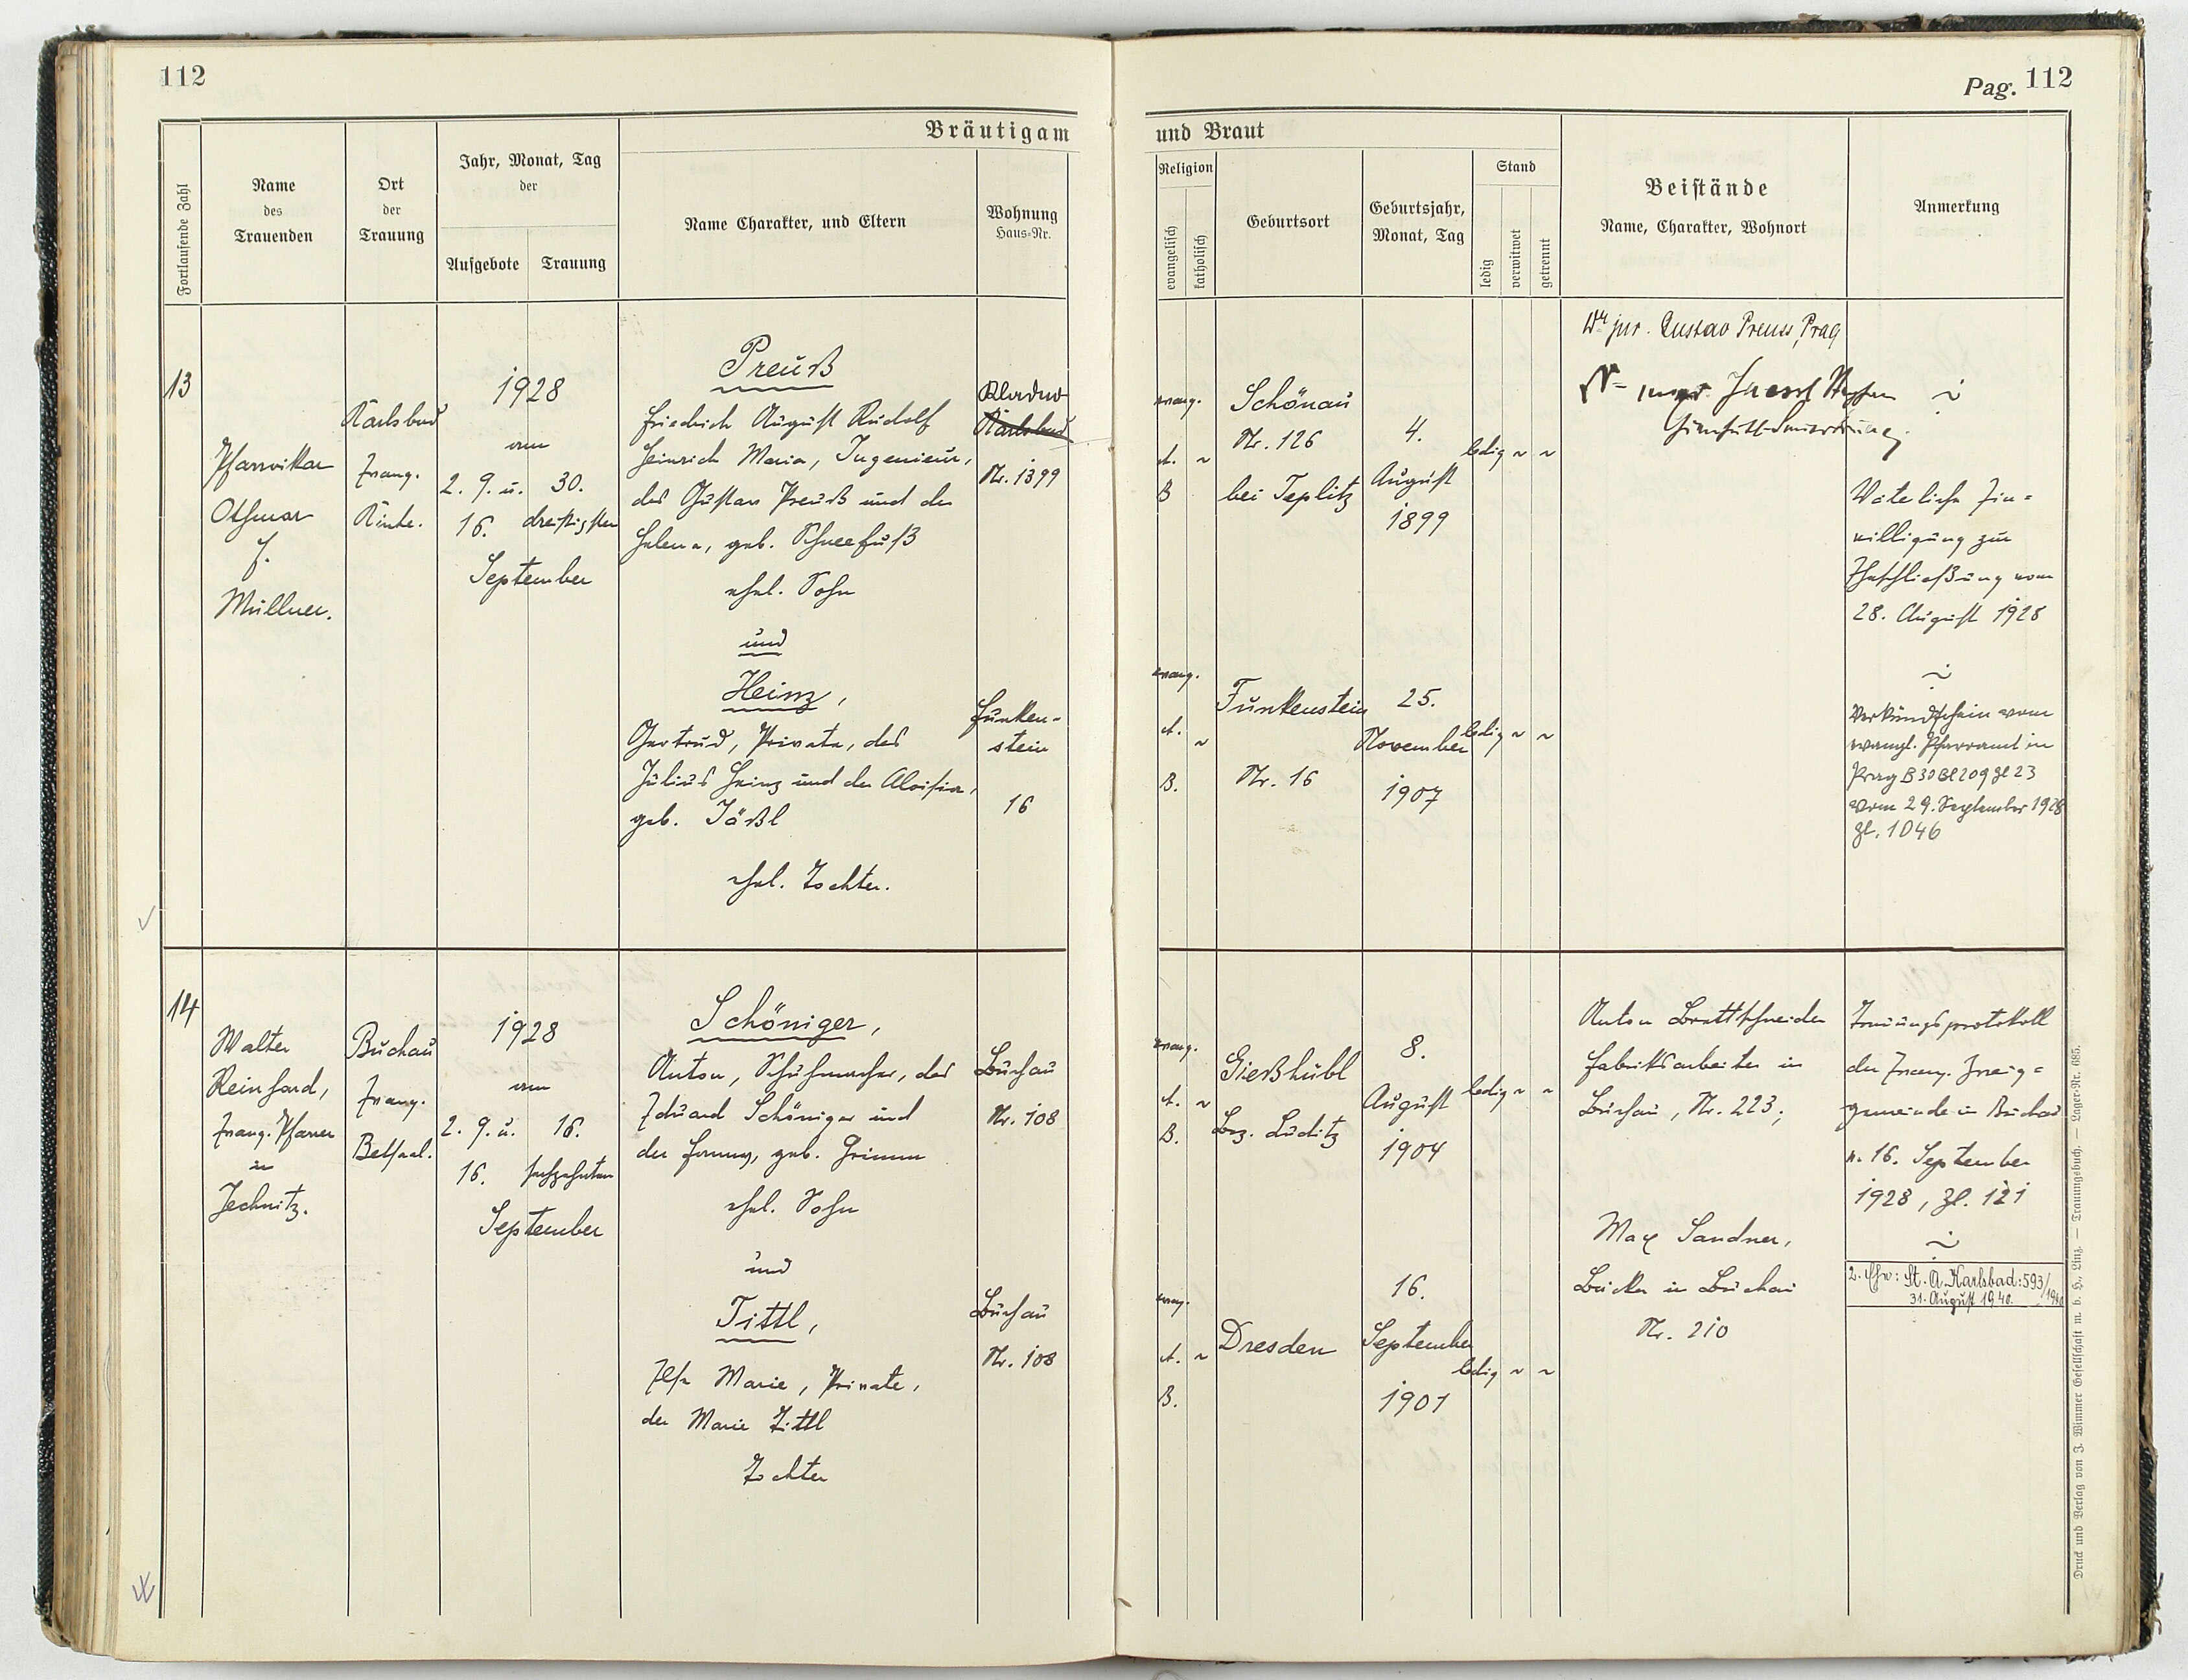 112
Bräutigam
Fortlaufende Zahl
Name
des
Trauenden
Ort
der
Trauung
Jahr, Monat, Tag
der
Aufgebote
Trauung
Name Charakter, und Eltern
Wohnung
Haus=Nr.
13
Pfarrvikar
Othmar
F.
Müllner.
Karlsbad
Evang.
Kirche.
1928
am
2. 9. u. 30.
16. dreißigsten
September
Preuß
Friedrich August Rudolf
Heinrich Maria, Ingenieur,
des Gustav Preuß und der
Helena, geb. Schneefuß
ehel. Sohn
und
Heinz,
Gertrud, Private, des
Julius Heinz und der Aloisia,
geb. Jäßl
ehel. Tochter.
Kladno
Karlsbad
Nr. 1399
Funken-
stein
16
14
Walter
Reinhard,
Evang. Pfarrer
in
Jechnitz.
Buchau
Evang.
Betsaal.
1928
am
2. 9. u. 16.
16. sechzehnten
September
Schöniger,
Anton, Schuhmacher, des
Eduard Schöniger und
der Fanny, geb. Grimm
ehel. Sohn
und
Tittl,
Else Marie, Private,
der Marie Tittl
Tochter
Buchau
Nr. 108
Buchau
Nr. 108
Pag. 112
und Braut
Religion
evangelisch
katholisch
Geburtsort
Geburtsjahr,
Monat, Tag
Stand
ledig
verwitwet
getrennt
Beistände
Name, Charakter, Wohnort
Anmerkung
evang.
A.
B
Schönau
Nr. 126
bei Teplitz
4.
August
1899
ledig
Dr jur. Gustav Preuss, Prag
Väterliche Ein=
willigung zur
Eheschließung vom
28. August 1928
evang.
A.
B.
Funkenstein
Nr. 16
25.
November
1907
ledig
Verkündschein vom
evangl. Pfarramt in
Prag B 30 Bl 209 Zl 23
vom 29. September 1928
Zl. 1046
evang.
A.
B.
Gießhübl
Bez. Luditz
8.
August
1904
ledig
Anton Brettschneider
Fabriksarbeiter in
Buchau, Nr. 223;
Trauungsprotokoll
der Evang. Zweig=
gemeinde in Buchau
v. 16. September
1928, Zl. 121
evang.
A.
B.
Dresden
16.
September
1901
ledig
Max Sandner,
Bäcker in Buchau
Nr. 210
2. Ehe: St. A. Karlsbad: 593/1940
31. August 1940.
Druck und Verlag von J. Wimmer Gesellschaft m. b. H., Linz. — Trauungsbuch. — Lager-Nr. 685.